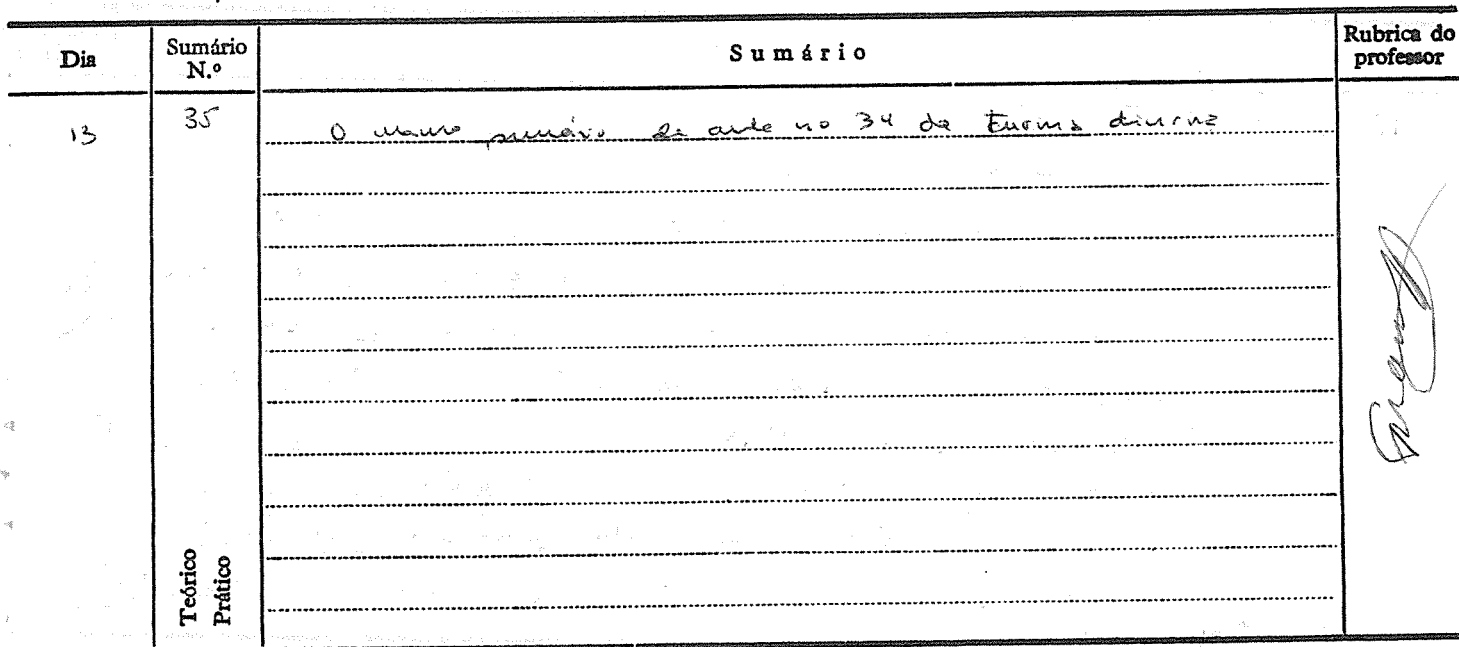 Dia
Sumário N.º
Sumário
Rubrica do professor
13
35
O mesmo sumário da aula no 34 da turma diurna
Teórico
Prático